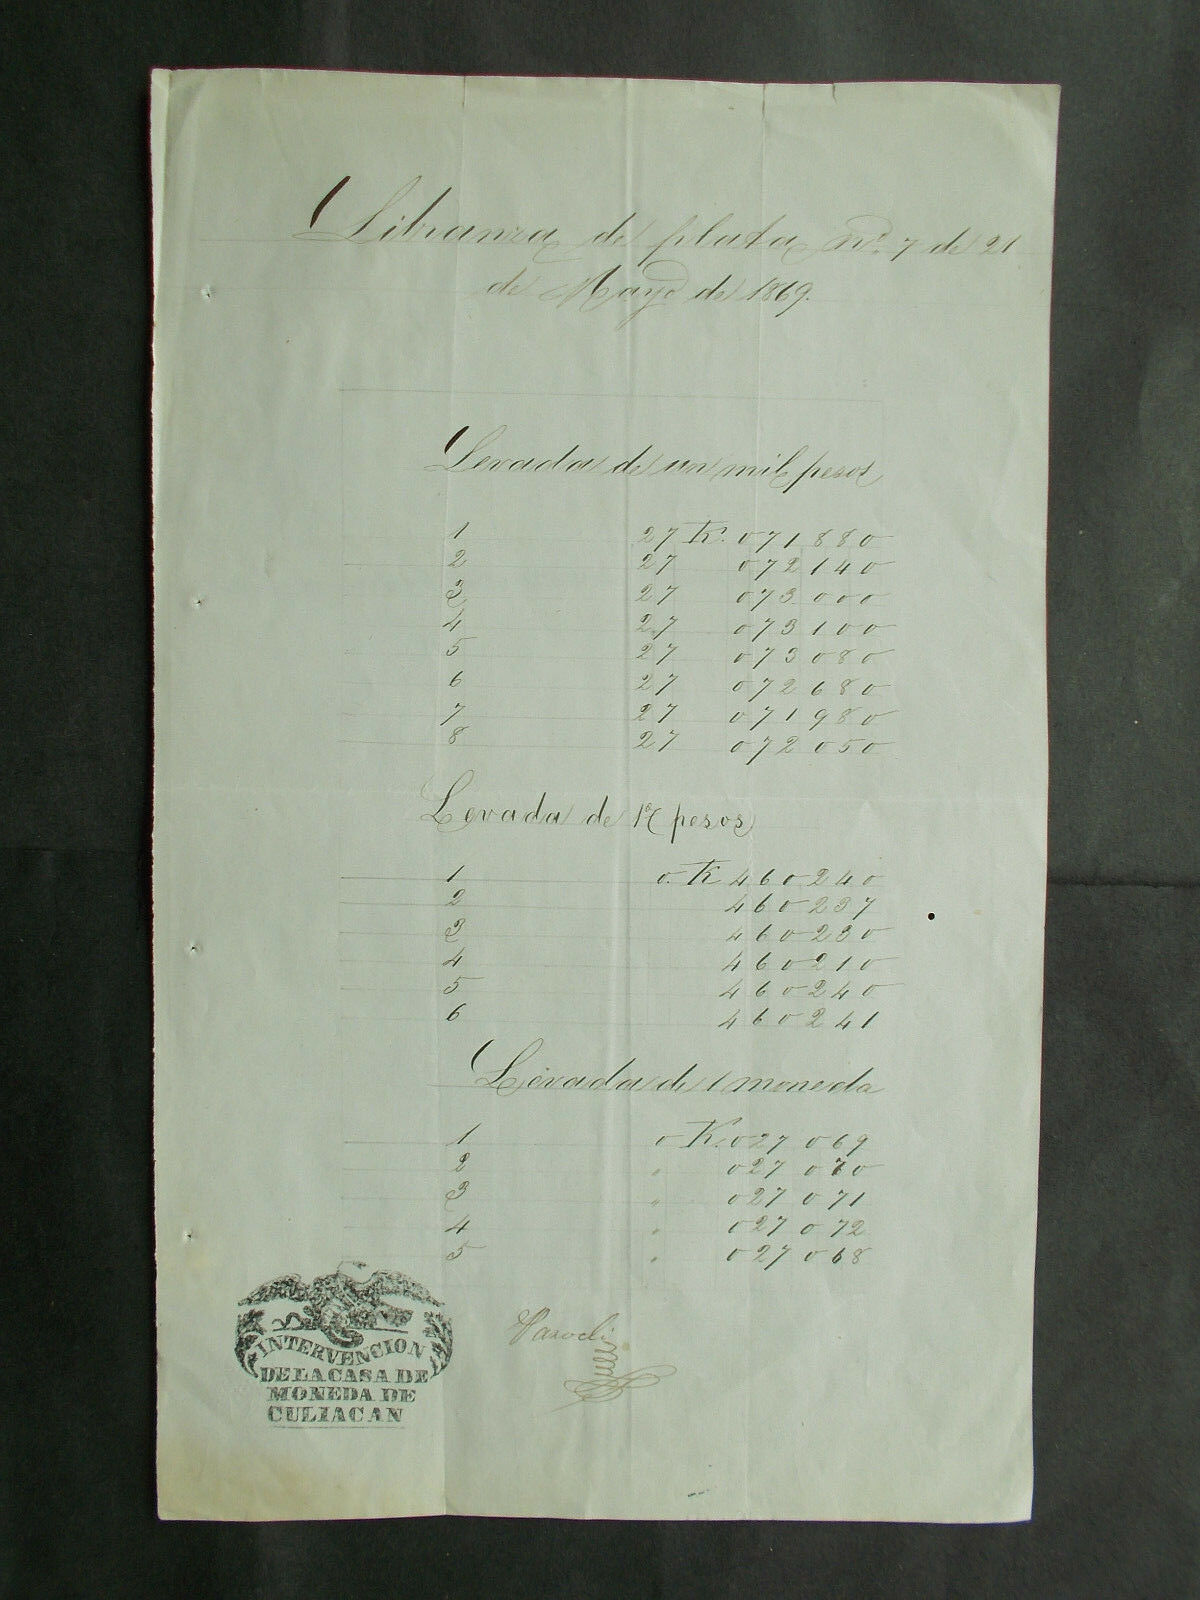 Libranza de plata nº. 7 de 21
de Mayo de 1869.
Levada de un mil pesos
1 27 K. 071880
2 27 072140
3 27 073000
4 27 073100
5 27 073080
6 27 072680
7 27 071980
8 27 072050
Levada de pesos
1 0. K 460240
2 460237
3 460230
4 460210
5 460240
6 460241
Levada de 1 moneda
1 0 K. 027069
2 " 027070
3 " 027071
4 " 027072
5 " 027068
Parodi
INTERVENCION
DE LA CASA DE
MONEDA DE
CULIACAN